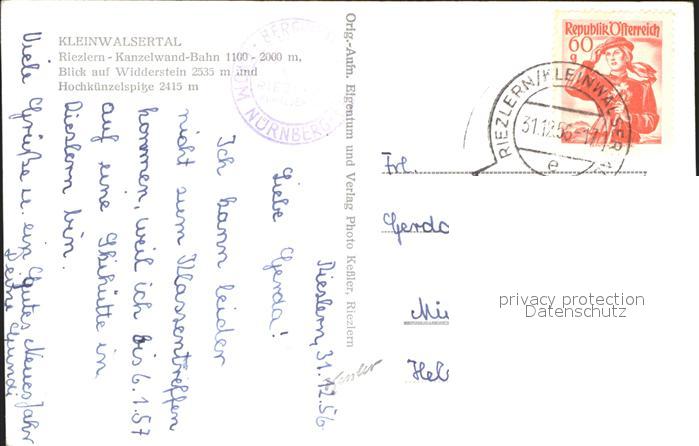 KLEINWALSERTAL
Riezlern - Kanzelwand-Bahn 1100 - 2000 m,
Blick auf Widderstein 2535 m und
Hochkünzelspitze 2415 m
Orig.-Aufn. Eigentum und Verlag Photo Keßler, Riezlern
NÜRNBERG
Republik Österreich
60
g
RIEZLERN/KLEINWALSER
31.12.56-17
e
Riezlern, 31.12.56
Liebe Gerda!
Ich kann leider
nicht zum Klassentreffen
kommen, weil ich bis 6.1.57
auf eine Skihütte in
Riezlern bin.
Viele Grüße u. ein Gutes Neues Jahr
Deine Gundi
Kessler
Frl.
Gerda
Mü
Hel
privacy protection
Datenschutz